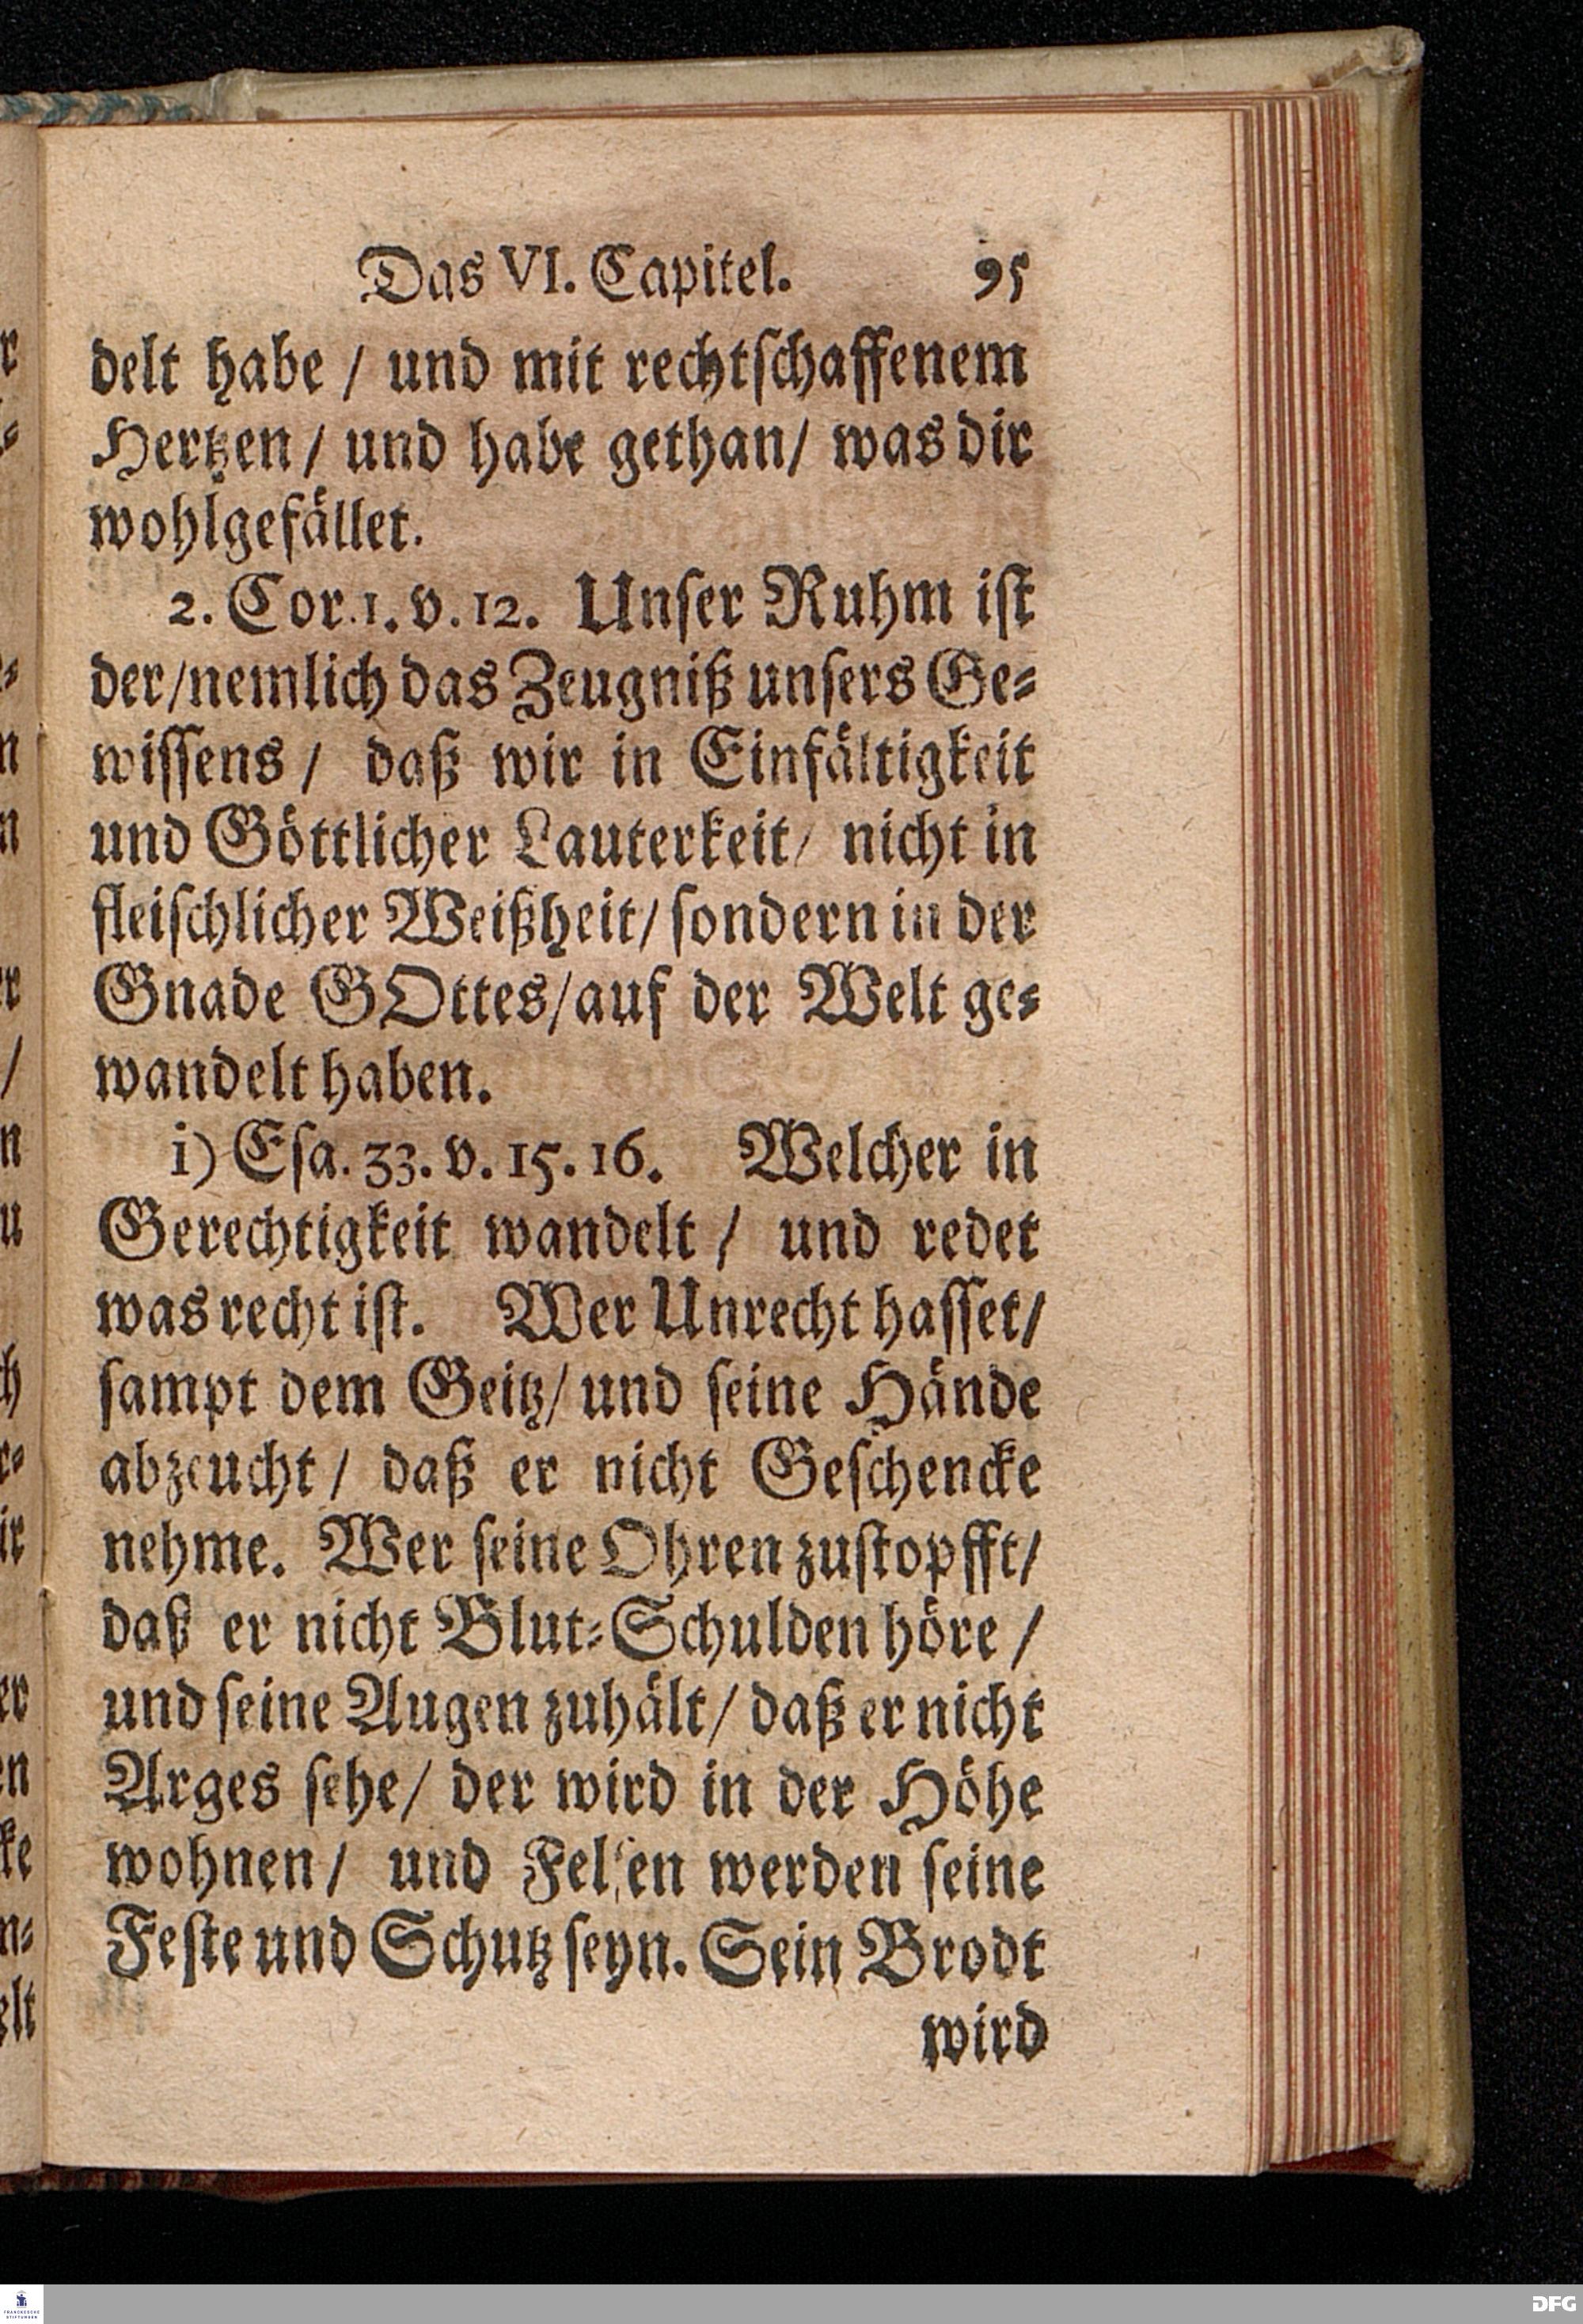 Das VI. Capitel. 95
delt habe / und mit rechtschaffenem
Hertzen / und habe gethan / was dir
wohlgefället.
2. Cor. 1. v. 12. Unser Ruhm ist
der / nemlich das Zeugniß unsers Ge-
wissens / daß wir in Einfältigkeit
und Göttlicher Lauterkeit / nicht in
fleischlicher Weißheit / sondern in der
Gnade GOttes / auf der Welt ge-
wandelt haben.
i) Esa. 33. v. 15. 16. Welcher in
Gerechtigkeit wandelt / und redet
was recht ist. Wer Unrecht hasset /
sampt dem Geitz / und seine Hände
abzeucht / daß er nicht Geschencke
nehme. Wer seine Ohren zustopfft /
daß er nicht Blut-Schulden höre /
und seine Augen zuhält / daß er nicht
Arges sehe / der wird in der Höhe
wohnen / und Felsen werden seine
Feste und Schutz seyn. Sein Brodt
wird
FRANCKESCHE
STIFTUNGEN
DFG